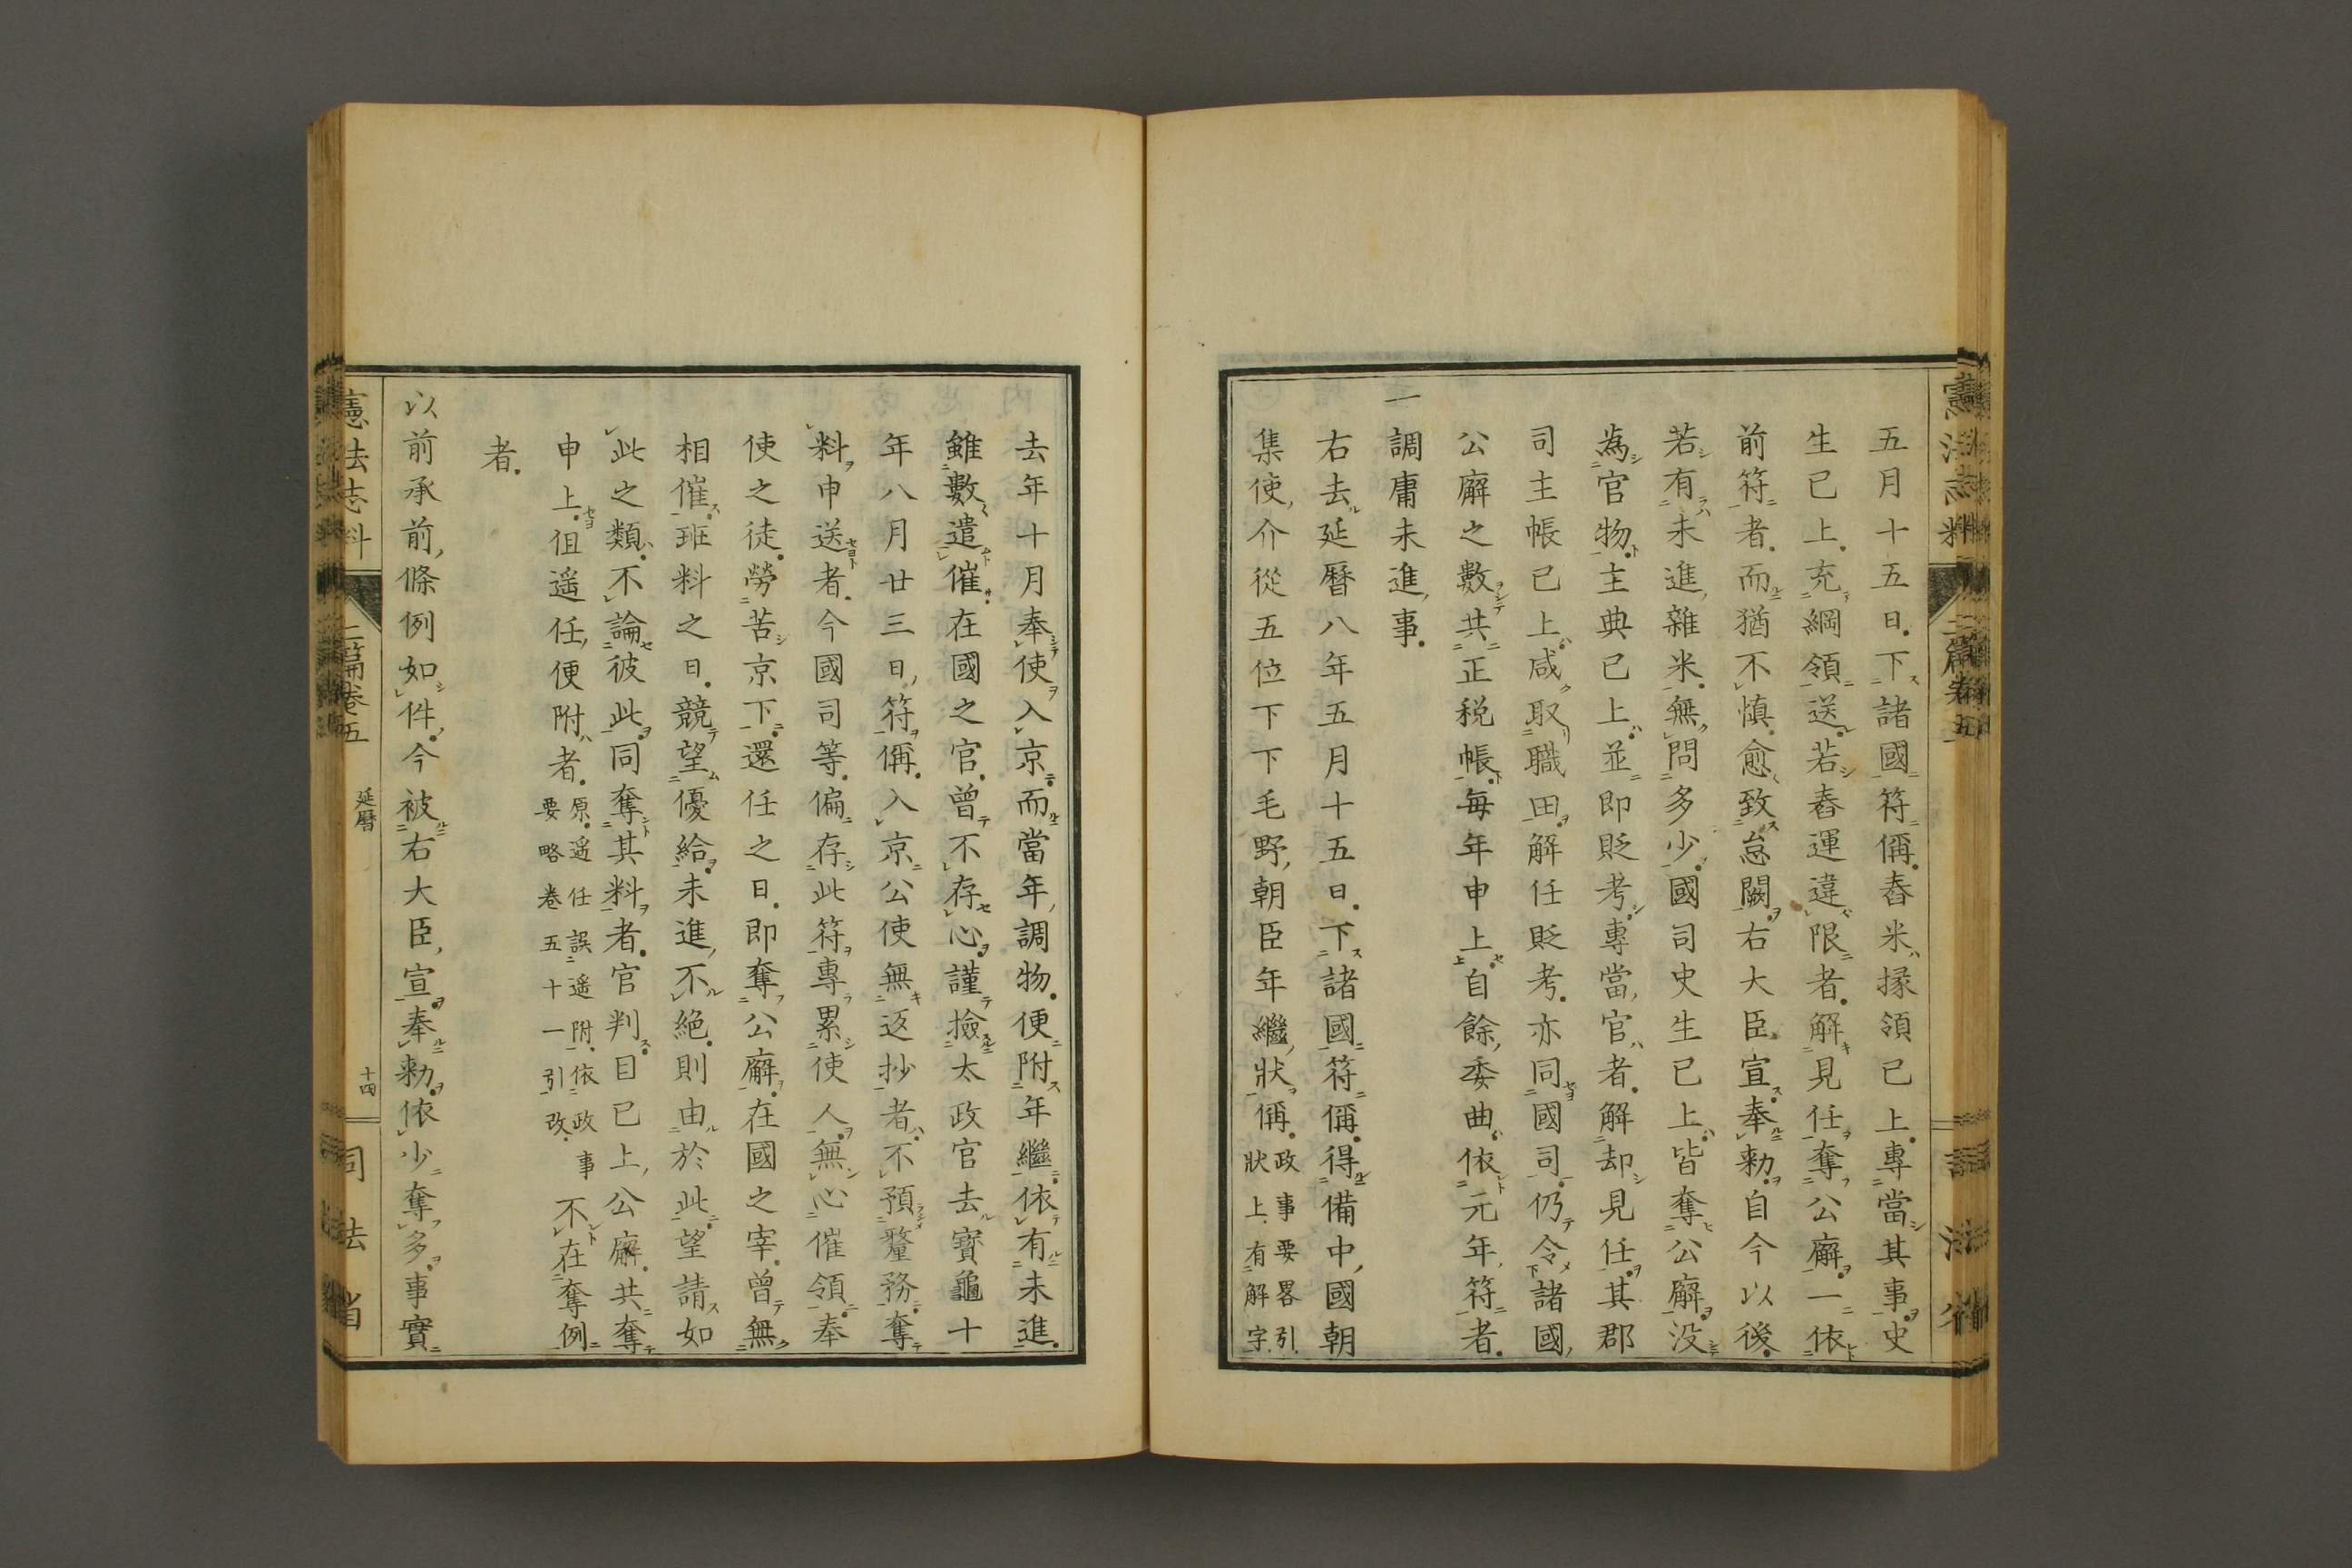 五月十五日。下諸國符稱。舂米掾領已上。專當其事。史
生已上。充綱領送。若舂運違限者。解見任。奪公廨。一依
前符者。而猶不愼。愈致怠闕。右大臣宣。奉勅。自今以後。
若有未進雜米。無問多少。國司史生已上。皆奪公廨。没
爲官物。主典已上。並即貶考。專當官者。解却見任。其郡
司主帳已上。咸取職田。解任貶考。亦同國司。仍令諸國
公廨之數。共正税帳。每年申上。自餘委曲。依元年符者。
一調庸未進事。
右去延曆八年五月十五日。下諸國符稱。得備中國朝
集使介從五位下下毛野朝臣年繼狀稱。政事要畧引。狀上有解字。
去年十月奉使入京。而當年調物。便附年繼。依有未進。
雖數遣催。在國之官。曾不存心。謹撿太政官去寶龜十
年八月廿三日符稱。入京公使無返抄者。不預釐務。奪
料申送者。今國司等。偏存此符。專累使人。無心催領。奉
使之徒。勞苦京下。還任之日。即奪公廨。在國之宰。曾無
相催。班料之日。競望優給。未進不絕。則由於此。望請如
此之類。不論彼此。同奪其料者。官判目已上公廨。共奪
申上。但遥任便附者。原。遥任誤遥附。依政事要略卷五十一引改。不在奪例
者。
以前承前條例如件。今被右大臣宣。奉勅。依少奪多。事實
憲法志料
二篇卷五
延曆
十四
司法省